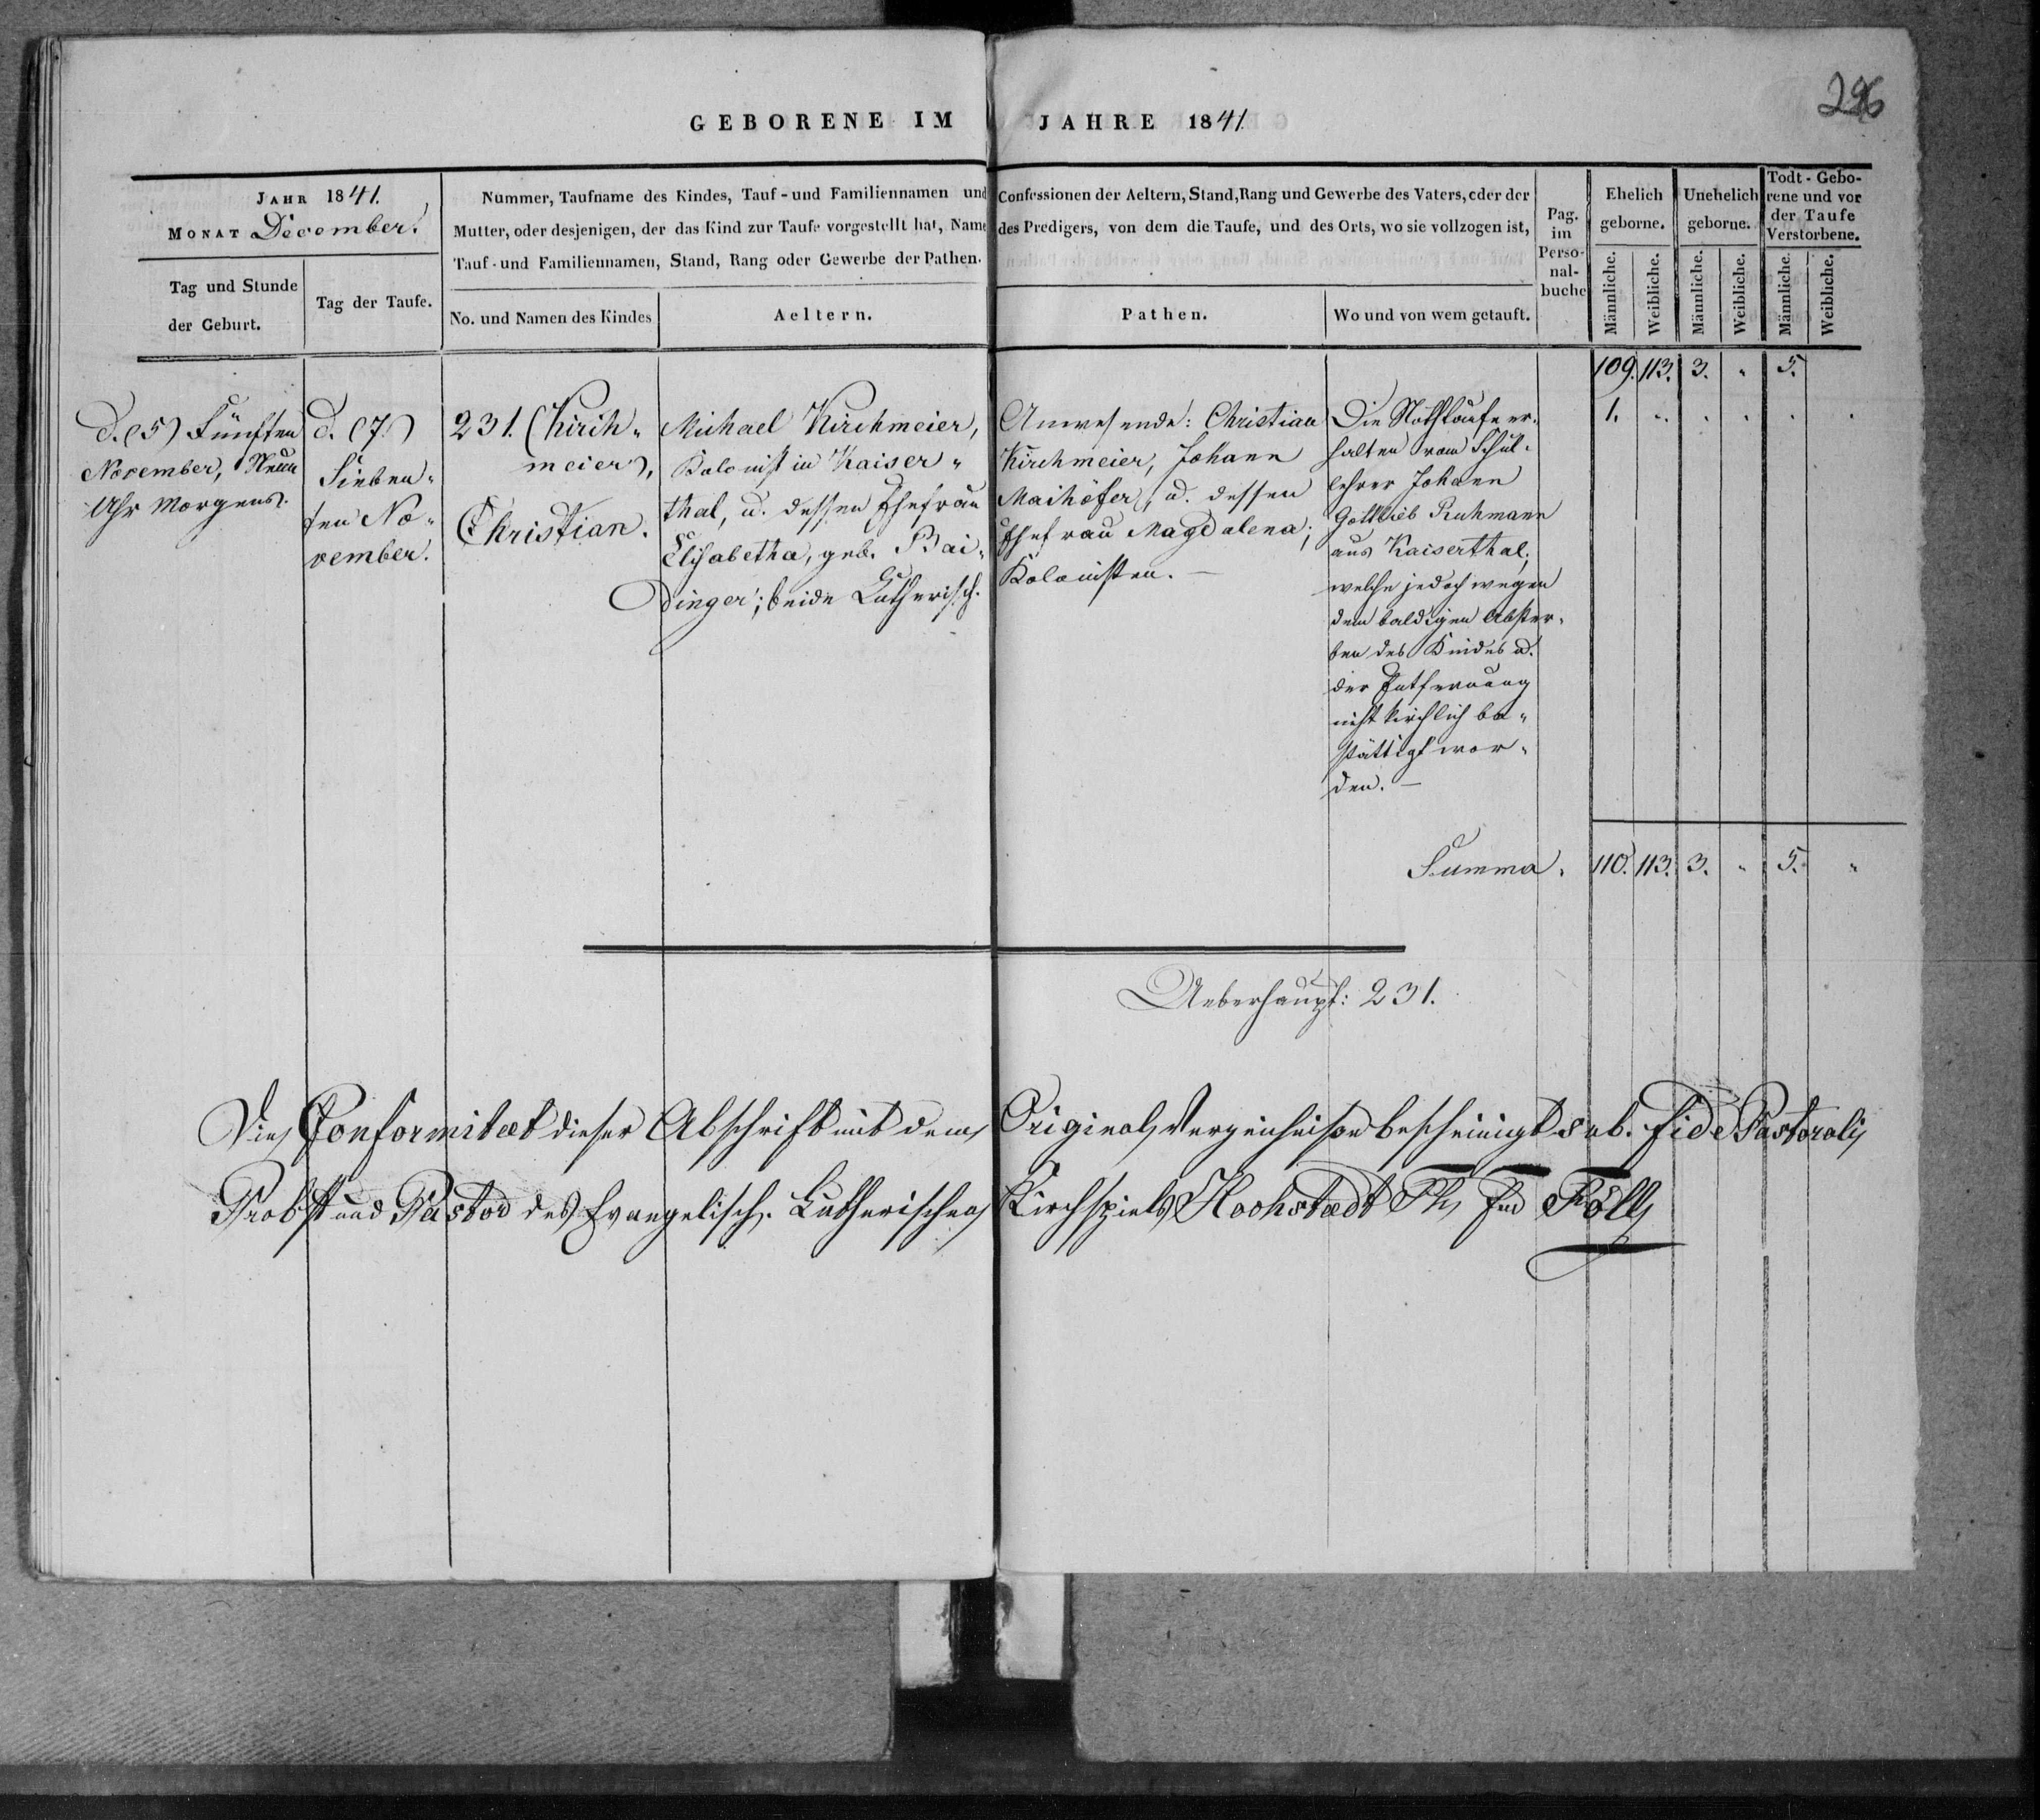 296
GEBORENE IM JAHRE 1841.
JAHR 1841.
MONAT December.
Tag und Stunde
der Geburt.
Tag der Taufe.
Nummer, Taufname des Kindes, Tauf- und Familiennamen und Confessionen der Aeltern, Stand, Rang und Gewerbe des Vaters, oder der
Mutter, oder desjenigen, der das Kind zur Taufe vorgestellt hat, Name des Predigers, von dem die Taufe, und des Orts, wo sie vollzogen ist,
Tauf- und Familiennamen, Stand, Rang oder Gewerbe der Pathen.
No. und Namen des Kindes
Aeltern.
Pathen.
Wo und von wem getauft.
Pag.
im
Perso-
nal-
buche
Ehelich
geborne.
Unehelich
geborne.
Todt-Gebo-
rene und vor
der Taufe
Verstorbene.
Männliche.
Weibliche.
Männliche.
Weibliche.
Männliche.
Weibliche.
109. 113. 3. " 5.
d. (5) Fünften
November, Neun
Uhr Morgens.
d. (7.)
Sieben-
ten No-
vember.
231. (Kirch-
meier),
Christian.
Michael Kirchmeier,
Kolonist in Kaiser-
thal, u. dessen Ehefrau
Elisabetha, geb. Bai-
dinger; beide Lutherisch.
Anwesende: Christian
Kirchmeier, Johann
Maihöfer, u. dessen
Ehefrau Magdalena;
Kolonisten. —
Die Nothtaufe er-
halten vom Schul-
lehrer Johann
Gottlieb Ruhmann
aus Kaiserthal;
welche jedoch wegen
dem baldigen Abster-
ben des Kindes u.
der Entfernung
nicht kirchlich be-
stättigt wor-
den. —
1. " " " " "
Summa. 110. 113. 3. " 5. "
Ueberhaupt: 231.
Die Conformitaet dieser Abschrift mit dem Original Verzeichnisse bescheinigt sub. fide Pastorali
Probst und Pastor des Evangelisch. Lutherischen Kirchspiels Hochstaedt Föll